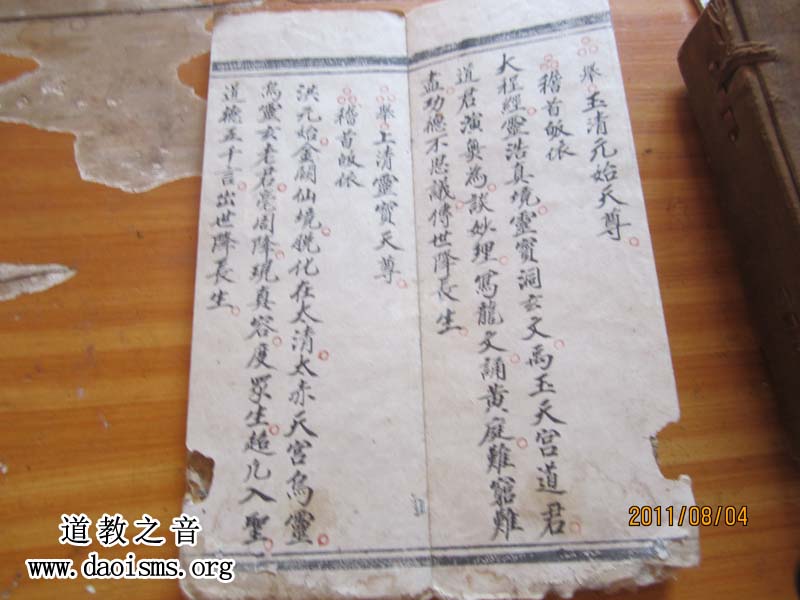 舉玉清元始天尊
稽首皈依
大程經靈浩真境靈寶洞玄文禹玉天宮道君
道君演奥為談妙理寫龍文誦黃庭難窮難
盡功德不思議傳世降長生
舉上清靈寶天尊
稽首皈依
洪元始金闕仙境化在太清太赤天宮烏靈
烏靈玄老君亳周降現真容度眾生超凡入聖
道德五千言出世降長生
道教之音
www.daoisms.org
2011/08/04